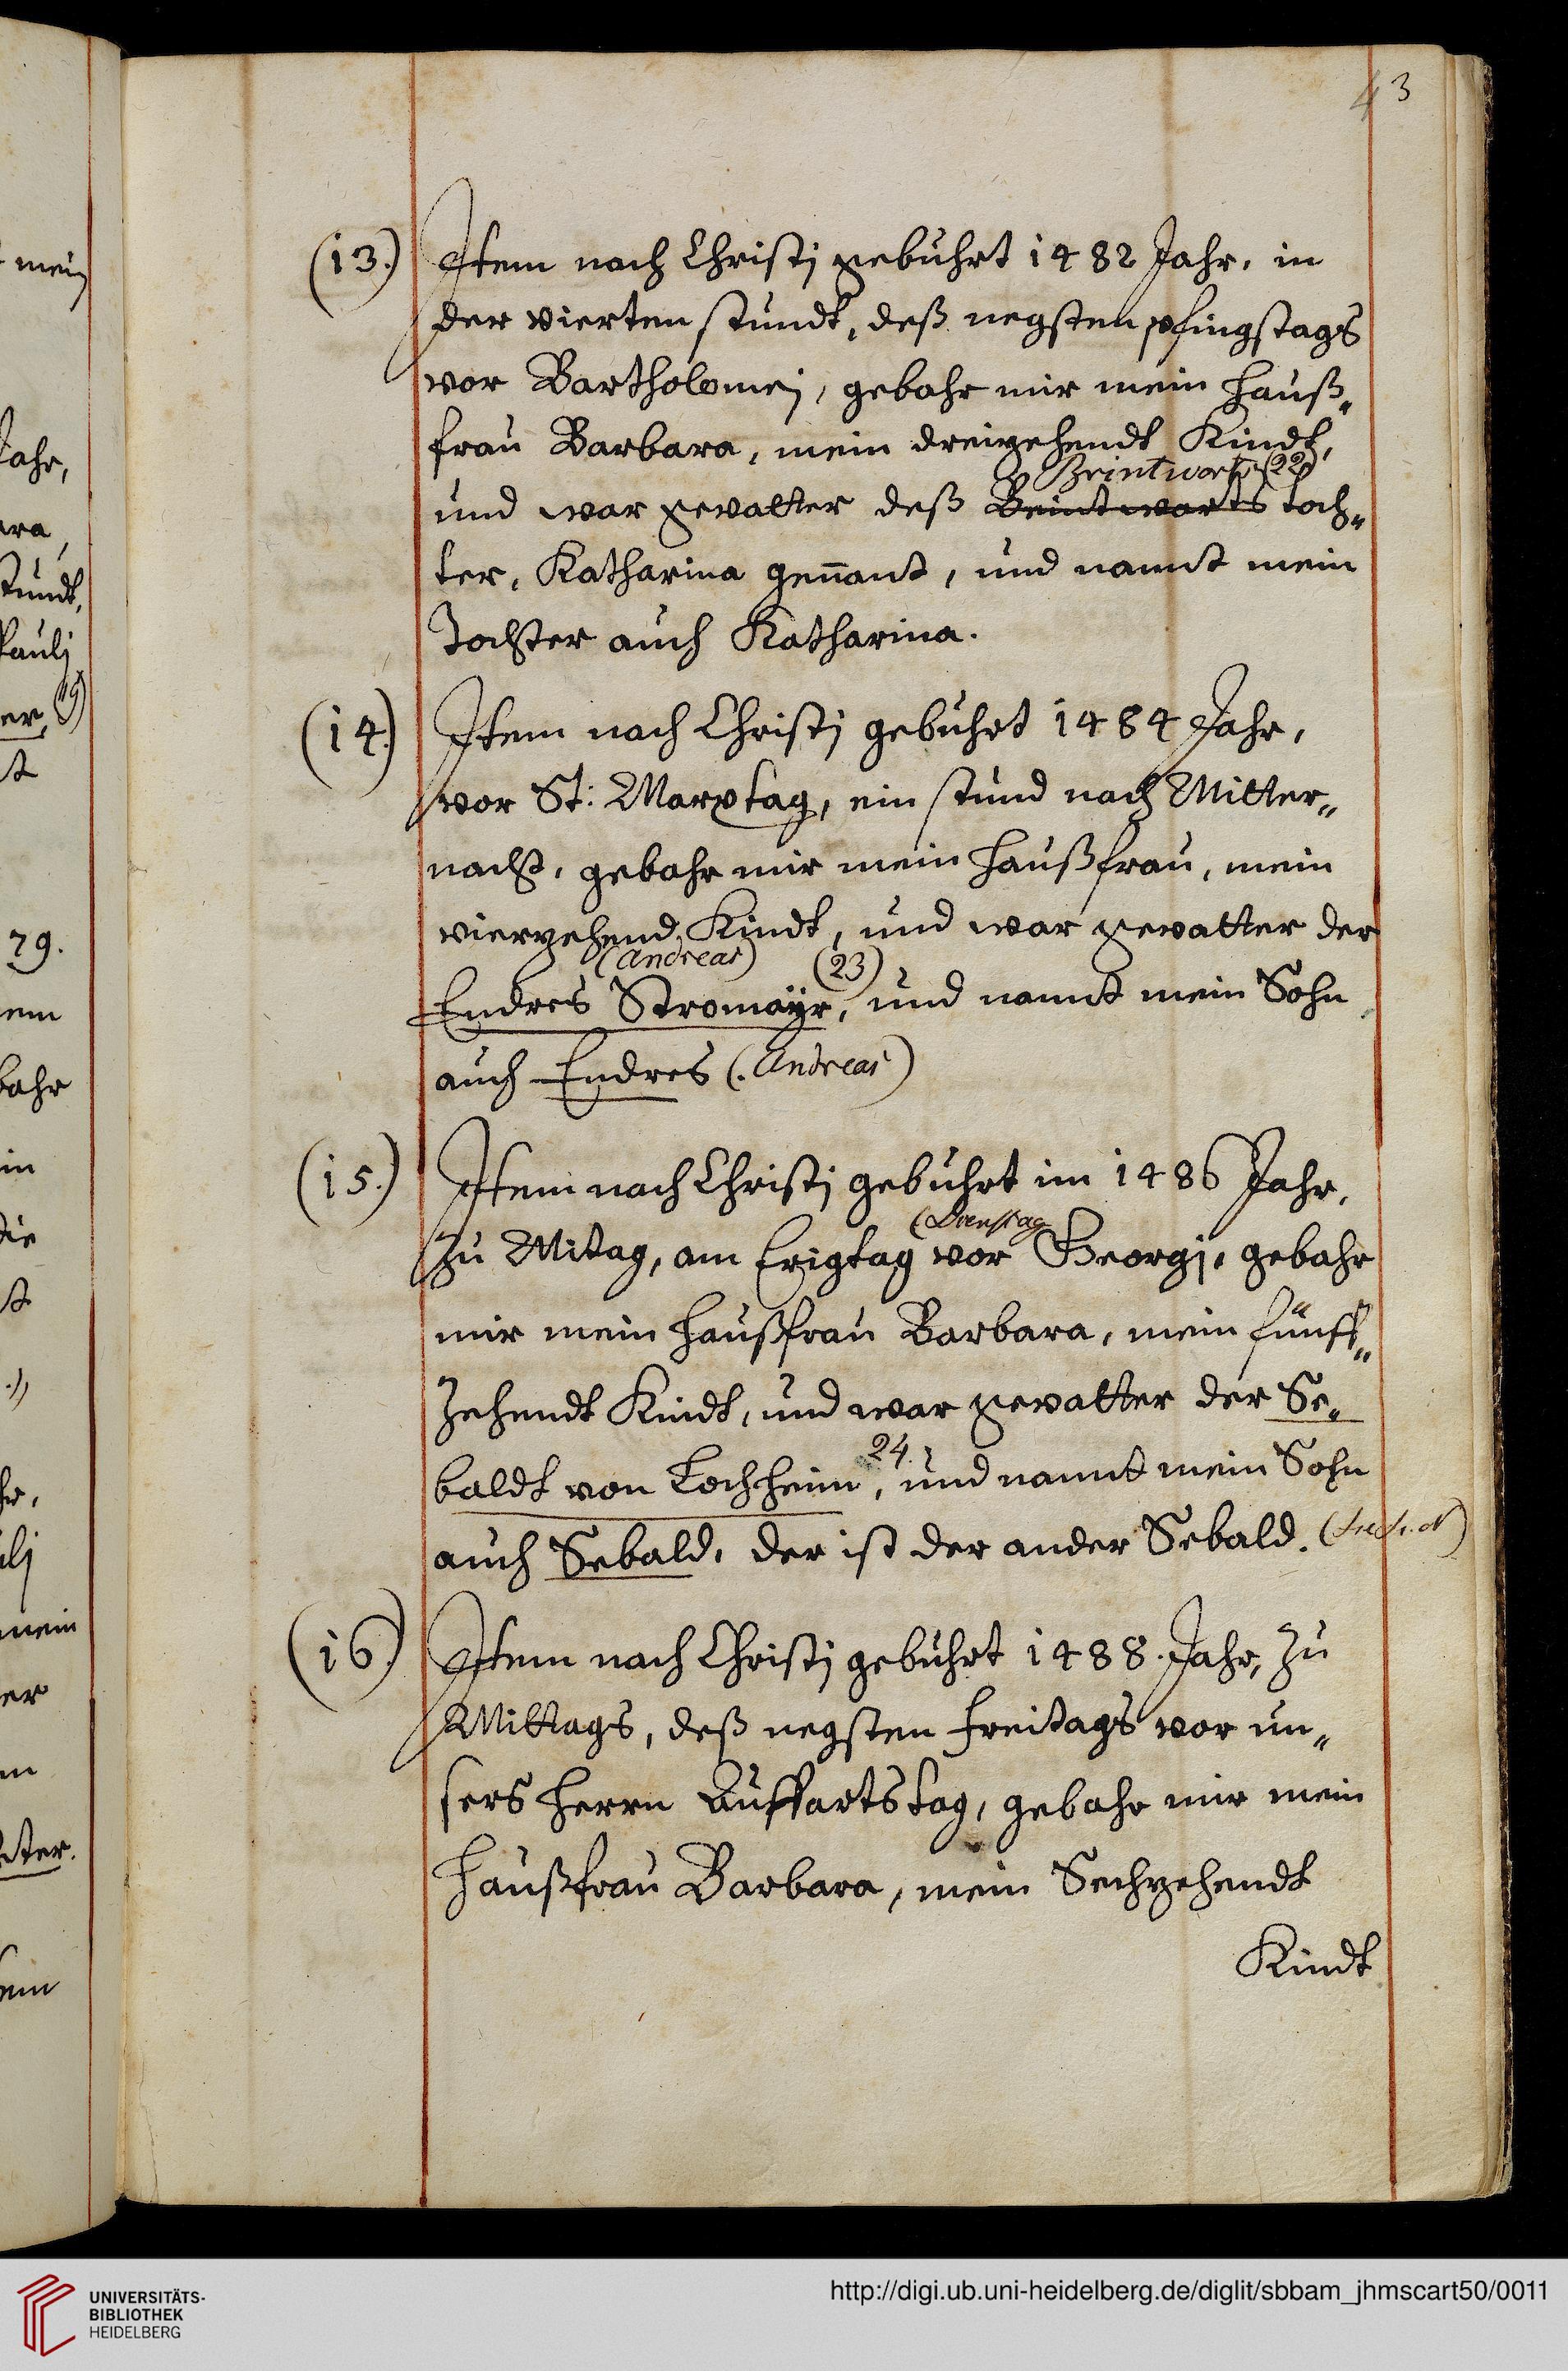 43
(13.) Item nach Christj gebuhrt 1482 Jahr, in
der vierten stundt, deß negsten pfingstags
vor Bartholomej, gebahr mir mein Hauß„
frau Barbara, mein dreizehendt Kindt,
(22)
und war gevatter deß Beintwarts toch„
ter, Katharina geñant, und nannt mein
Tochter auch Katharina.
(14.) Item nach Christj gebuhrt 1484 Jahr,
vor St: Marxtag, ein stund nach Mitter„
nacht, gebahr mir mein Haußfrau, mein
vierzehend Kindt, und war gevatter der
(Andreas) (23)
Endres Stromaÿr, und nannt mein Sohn
auch Endres (. Andreas)
(15.) Item nach Christj gebuhrt im 1486 Jahr,
(Dienstag
Zu Mitag, am Erigtag vor Georgj, gebahr
mir mein Haußfrau Barbara, mein fünff„
Zehendt Kindt, und war gevatter der Se„
24.
baldt von Lochheim, und nannt mein Sohn
auch Sebald, der ist der ander Sebald.
(16.) Item nach Christj gebuhrt 1488. Jahr, Zu
Mittags, deß negsten Freitags vor un„
sers Herrn Auffartstag, gebahr mir mein
Haußfrau Barbara, mein Sechzehendt
Kindt
UNIVERSITÄTS-
BIBLIOTHEK
HEIDELBERG
http://digi.ub.uni-heidelberg.de/diglit/sbbam_jhmscart50/0011